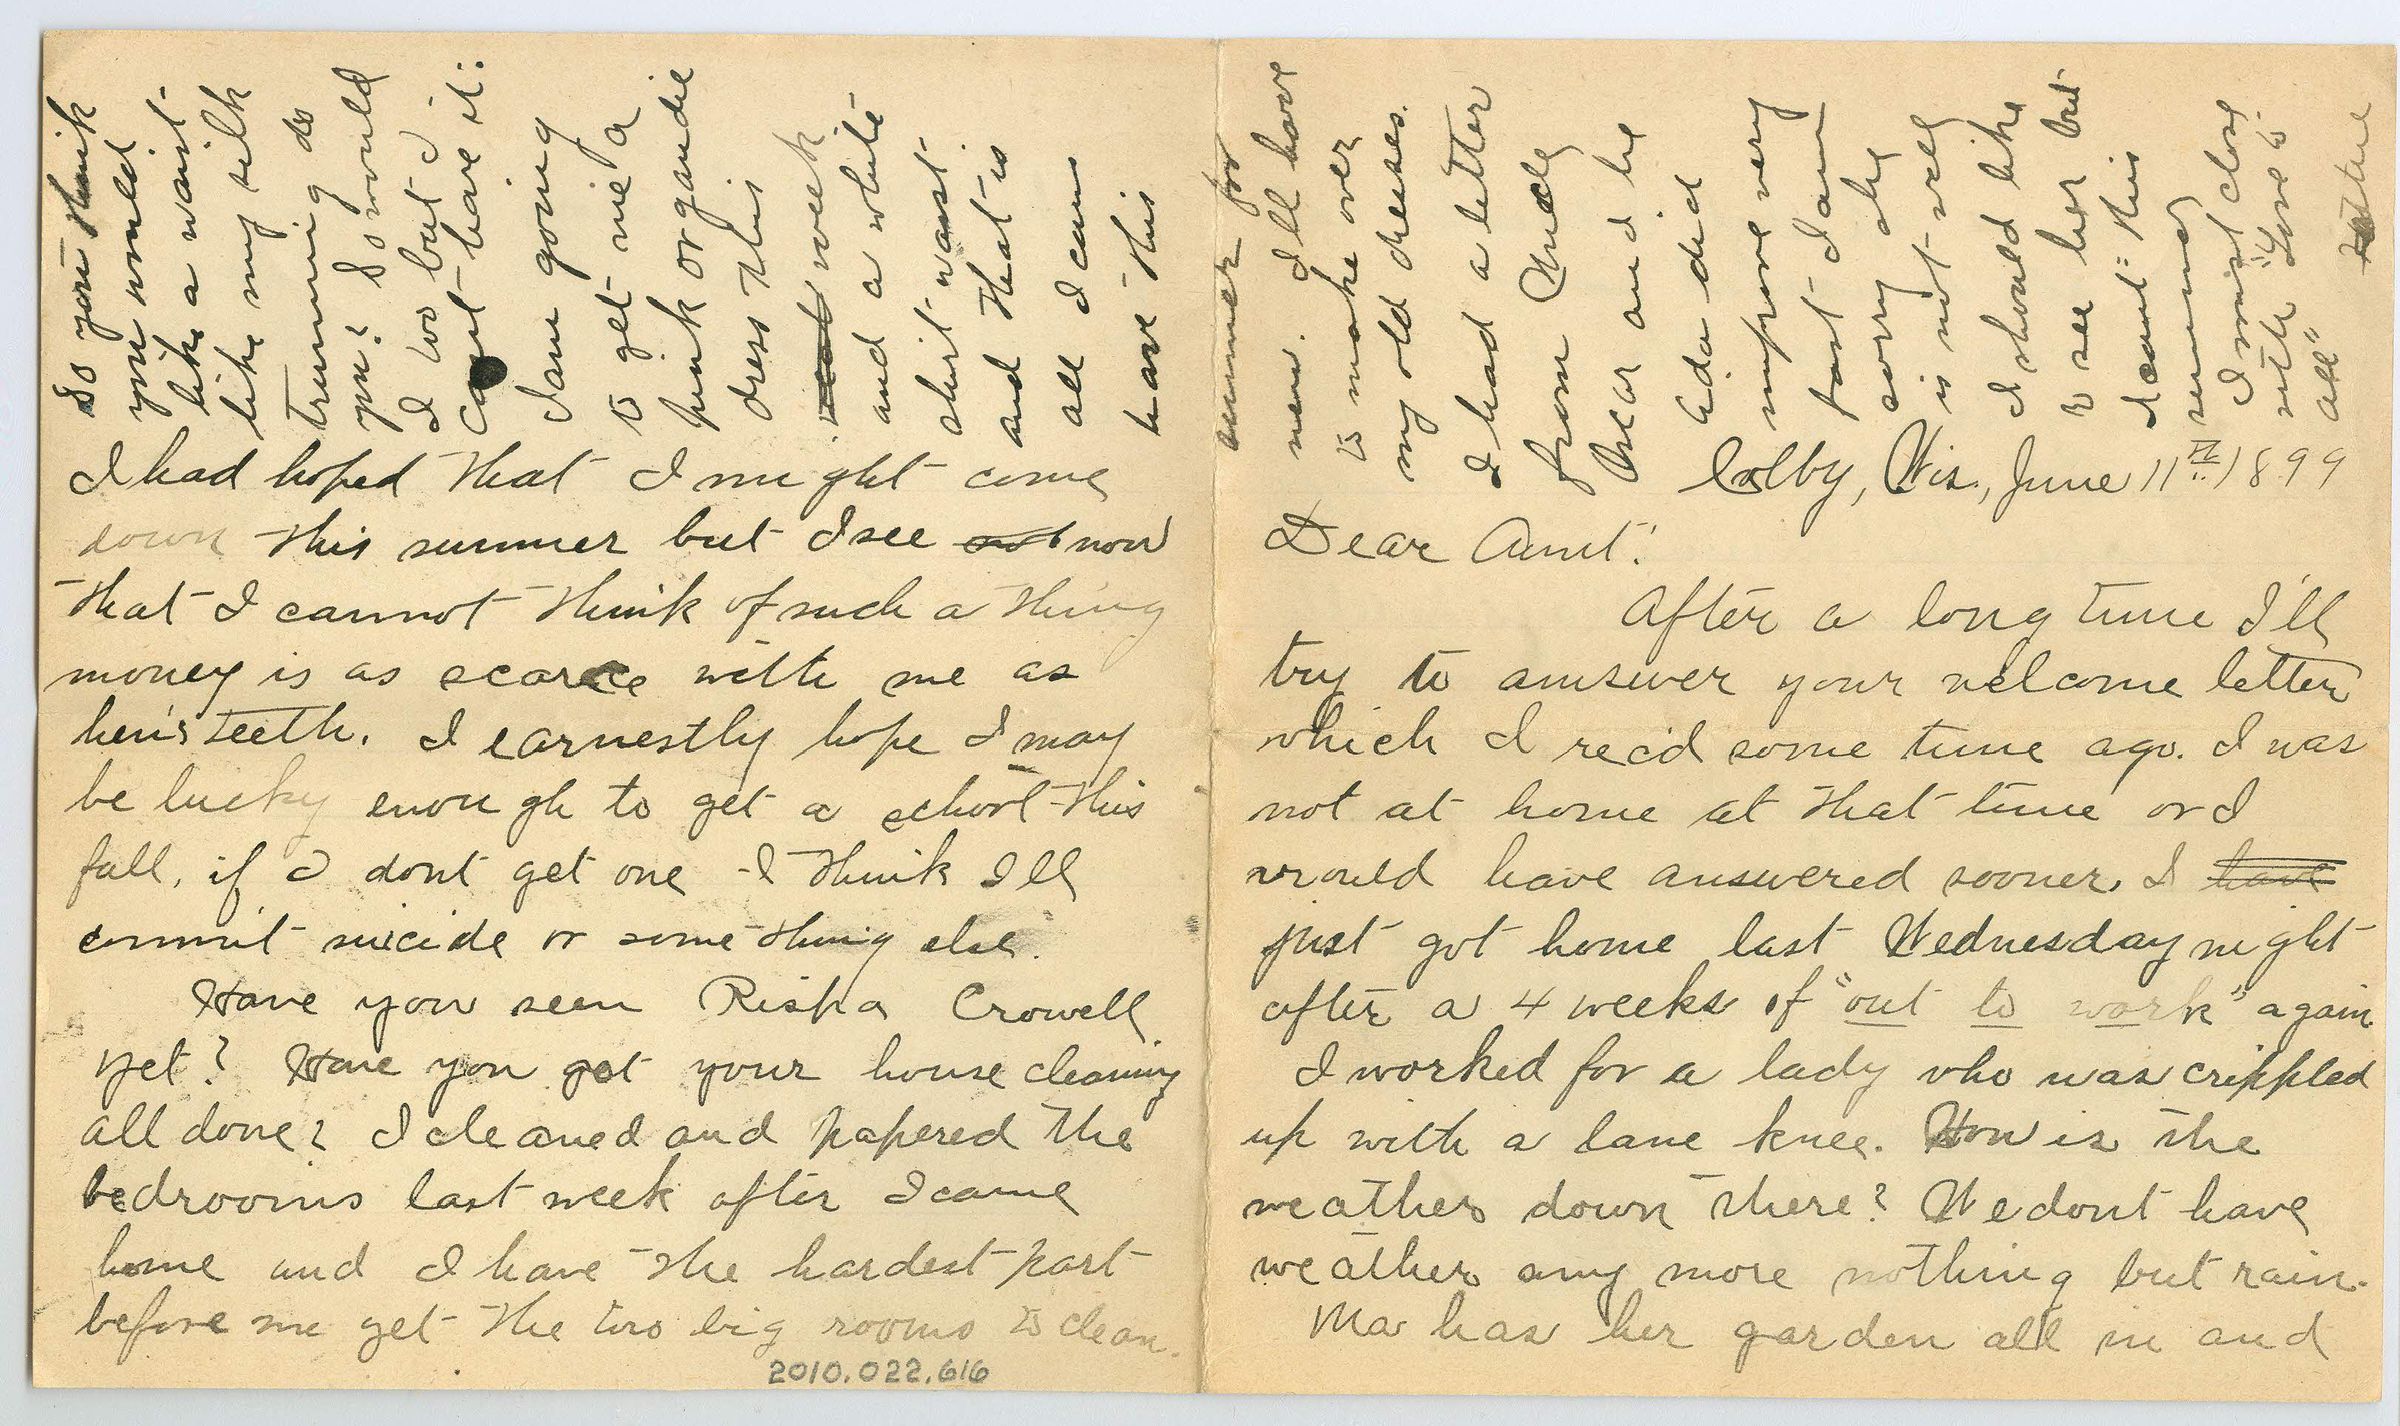 Colby, Wis., June 11th 1899
Dear Aunt:
After a long time I'll
try to answer your welcome letter
which I rec'd some time ago. I was
not at home at that time or I
would have answered sooner. I have
just got home last Wednesday night
after a 4 weeks of "out to work" again
I worked for a lady who was crippled
up with a lame knee. How is the
weather down there? We dont have
weather any more nothing but rain.
Ma has her garden all in and
I had hoped that I might come
down this summer but I see not now
that I cannot think of such a thing
money is as scarce with me as
hen's teeth. I earnestly hope I may
be lucky enough to get a school this
fall, if I dont get one I think I'll
commit suicide or something else.
Have you seen Rispha Crowell
yet? Have you got your house cleaning
all done? I cleaned and papered the
bedrooms last week after I came
home and I have the hardest part
before me yet the two big rooms to clean.
So you think
you would
like a waist
like my silk
trimming do
you? So would
I too but I
cant have it:
I am going
to get me a
pink organdie
dress this
week
and a white
shirt waist
and that is
all I can
have this
summer for
new. I'll have
to make over
my old dresses.
I had a letter
from Uncle
Oscar and he
Eda did
improve very
fast I am
sorry she
is not well
I should like
to see her but
I cant this
summer
I must close
with "Love to
all"
2010.022.616